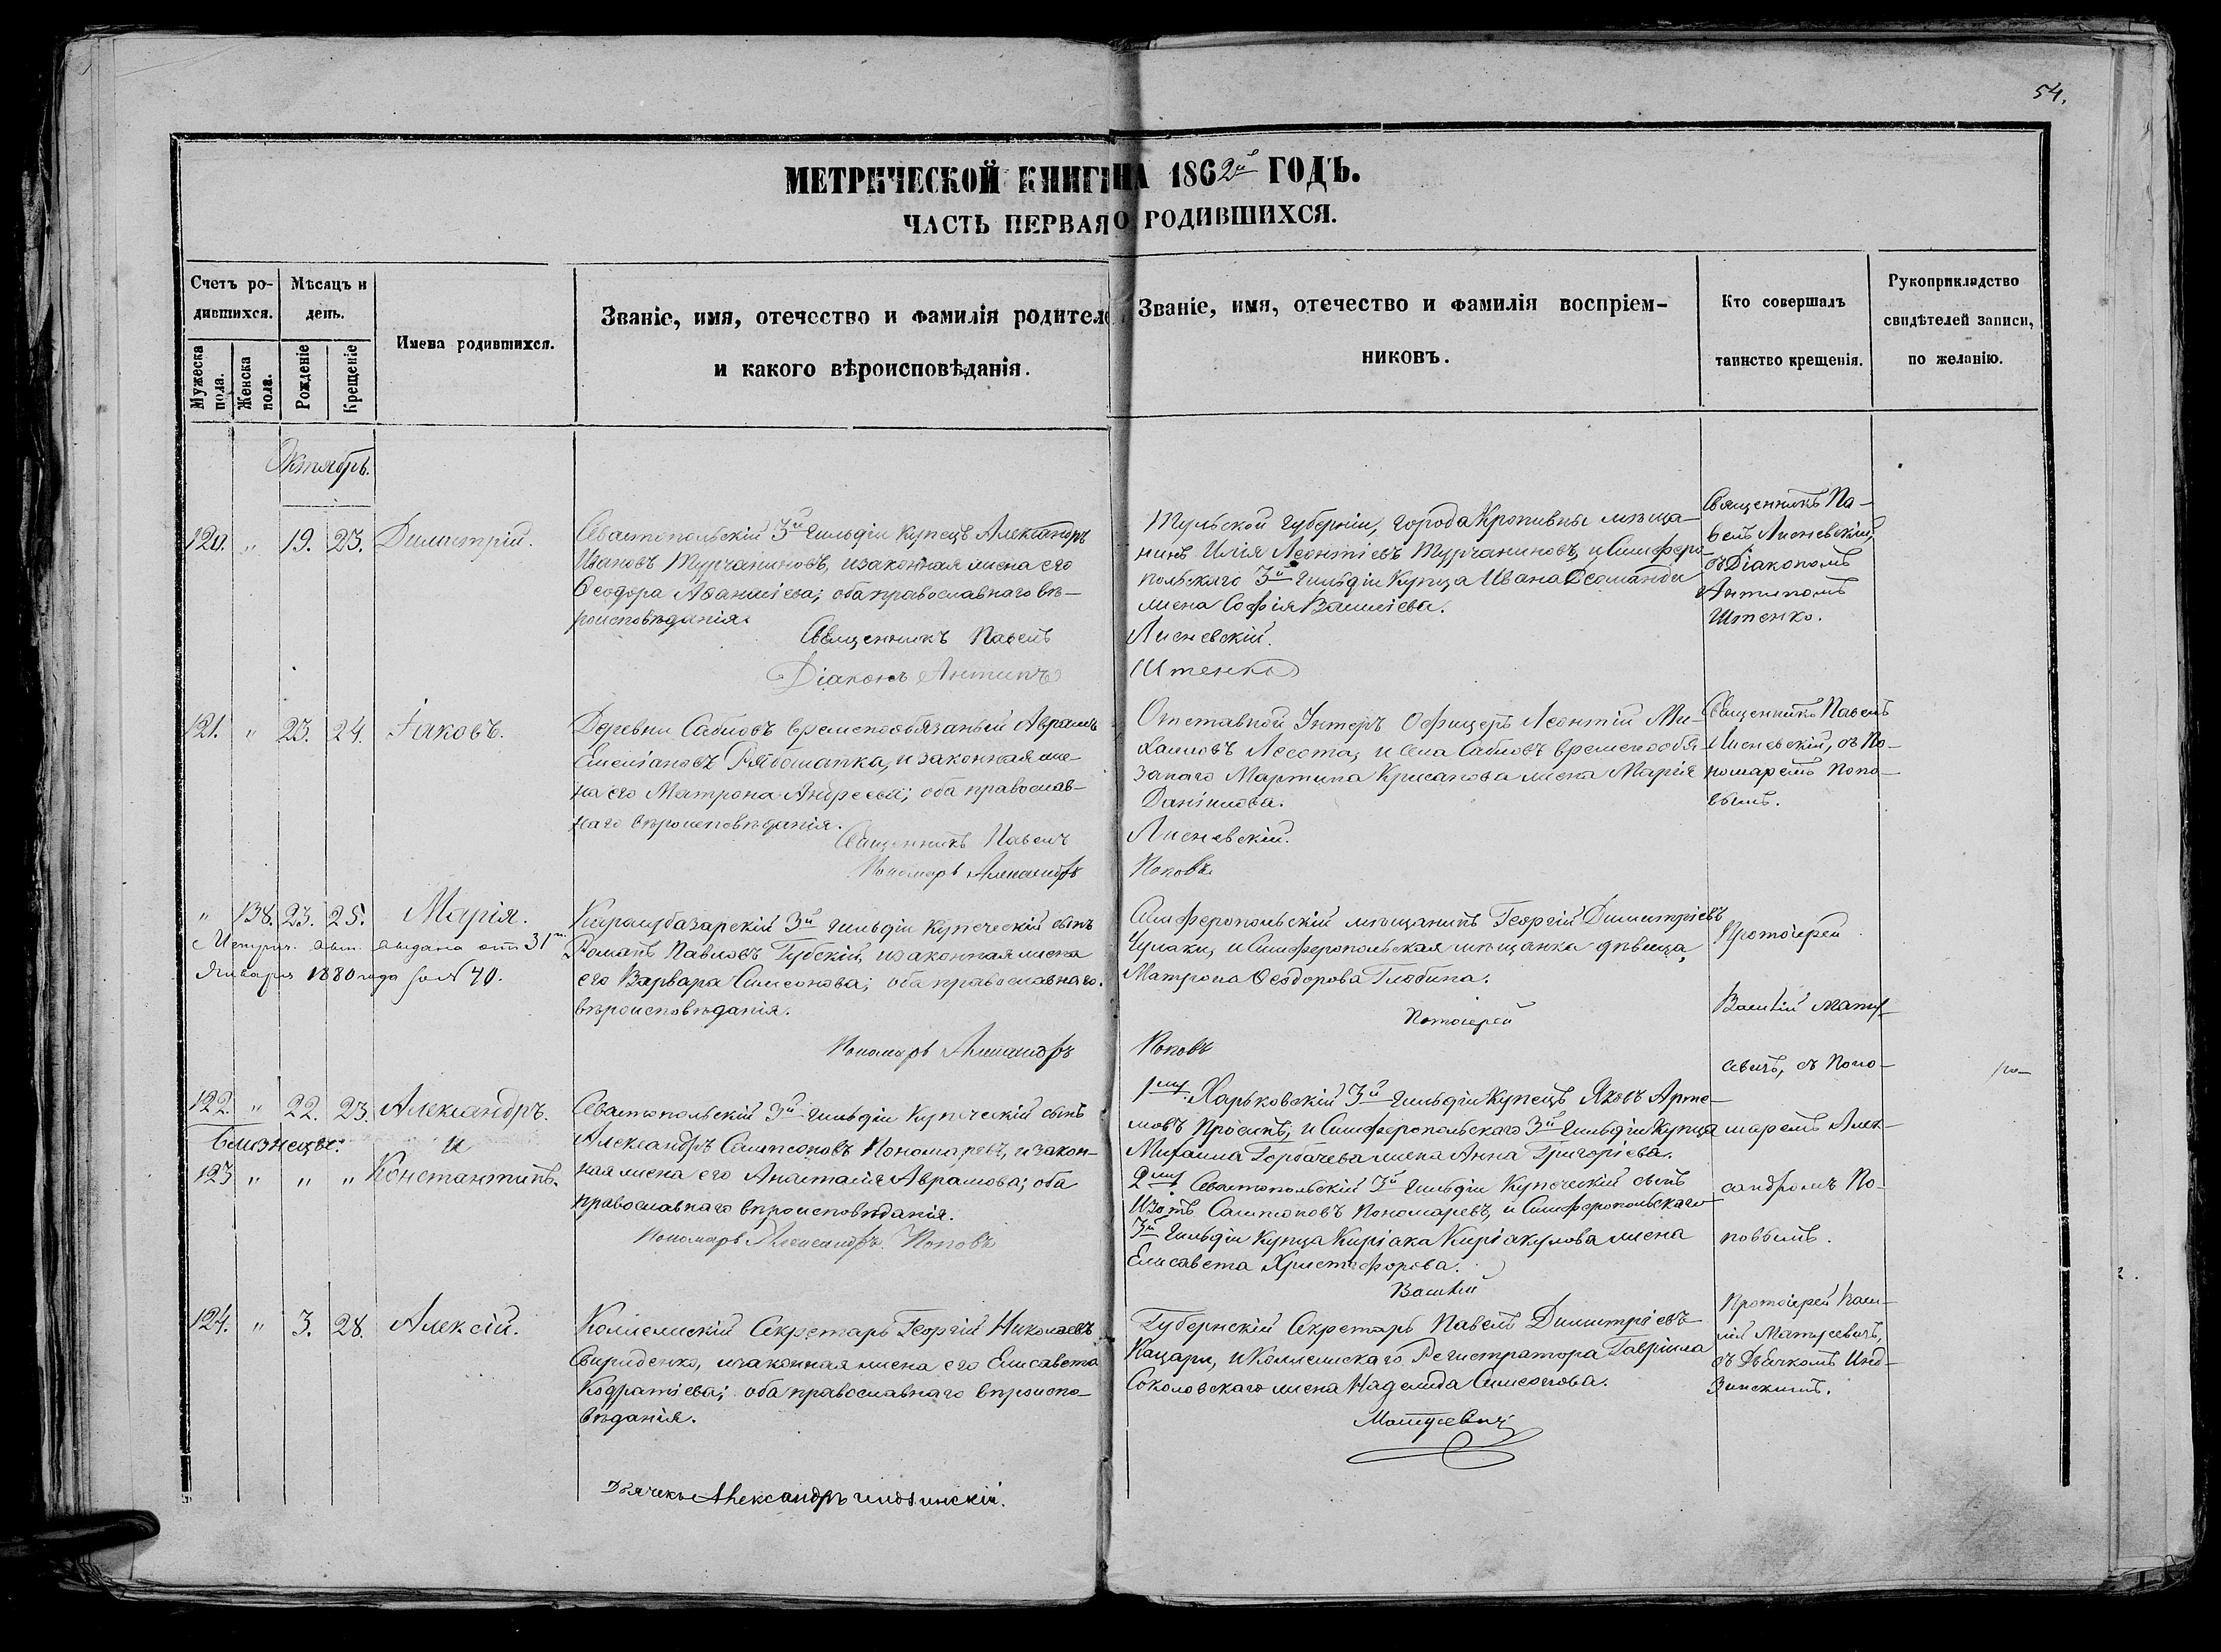 54.
МЕТРИЧЕСКОЙ КНИГИ НА 1862й ГОДЪ.
ЧАСТЬ ПЕРВАЯ О РОДИВШИХСЯ.
Счетъ ро-
дившихся.
Мужеска пола.
Женска пола.
Мѣсяцъ и
день.
Рожденіе
Крещеніе
Имена родившихся.
Званіе, имя, отечество и фамилія родителе
и какого вѣроисповѣданія.
Званіе, имя, отечество и фамилія воспріем-
никовъ.
Кто совершалъ
таинство крещенія.
Рукоприкладство
свидѣтелей записи,
по желанію.
Октябрь.
120. „ 19. 23. Димитрій.
Севастопольскій 3й гильдіи купецъ Александръ
Ивановъ Турчаниновъ, и законная жена его
Ѳеодора Аѳанасіева; оба православнаго вѣ-
роисповѣданія.
Священникъ Павелъ
Діаконъ Антипъ
Тульской губерніи, города Кропивны мѣща-
нинъ Илія Леонтіевъ Турчаниновъ, и Симферо-
польскаго 3й гильдіи купца Ивана
жена Софія Василіева.
Лисневскій.
Штенко
Священникъ Па-
велъ Лисневскій,
съ Діакономъ
Антипомъ
Штенко.
121. „ 23. 24. Іаковъ.
Деревни Сабловъ временнообязаный Аврамъ
Емеліановъ Рябошапка, и законная же-
на его Матрона Андреева; оба православ-
наго вѣроисповѣданія.
Священникъ Павелъ
Пономарь Александръ
Отставной Унтеръ Офицеръ Леонтій Ми-
хаиловъ и села Сабловъ временнообя-
занаго Мартина Крисанова жена Марія
Даніилова.
Лисневскій.
Поповъ
Священникъ Павелъ
Лисневскій, съ По-
номаремъ Попо-
вымъ.
„ 138. 23. 25. Марія.
Метрич. выдана отъ 31го
Января 1880 года за № 40.
Карасубазарскій 3й гильдіи купеческій сынъ
Романъ Павловъ Губскій, и законная жена
его Варвара Симеонова; оба православнаго
вѣроисповѣданія.
Пономарь Александръ
Симферопольскій мѣщанинъ Георгій Димитріевъ
Чумаки, и Симферопольская мѣщанка дѣвица,
Матрона Ѳеодорова Глобина.
Протоіерей
Поповъ
Протоіерей
Василій Мату-
севичъ, съ Поно-
122. „ 22. 23. Александръ.
близнецы. и
123 „ „ „ Константинъ.
Севастопольскій 3й гильдіи купеческій сынъ
Александръ Сампсоновъ Пономаревъ, и закон-
ная жена его Анастасія Аврамова; оба
православнаго вѣроисповѣданія.
Пономарь Александръ Поповъ
1му. Харьковскій 3й гильдіи купецъ Яковъ Арте-
мовъ и Симферопольскаго 3й гильдіи купца
Михаила Горбачева жена Анна Григоріева.
2му Севастопольскій 3й гильдіи купеческій сынъ
Изотъ Сампсоновъ Пономаревъ, и Симферопольскаго
3й гильдіи купца Киріака Киріакулова жена
Елисавета Христофорова.
Василій
маремъ Алек-
сандромъ По-
повымъ.
124. „ 3. 28. Алексій.
Коллежскій Секретарь Георгій Николаевъ
Свириденко, и законная жена его Елисавета
Кодратіева; оба православнаго вѣроиспо-
вѣданія.
Дьячекъ Александръ Индзинскій.
Губернскій Секретарь Павелъ Димитріевъ
Кацари, и Коллежскаго Регистратора Гавріила
Соколовскаго жена Надежда Симеонова.
Матусевичъ
Протоіерей Васи-
лій Матусевичъ,
съ Дьячкомъ Инд-
зинскимъ.